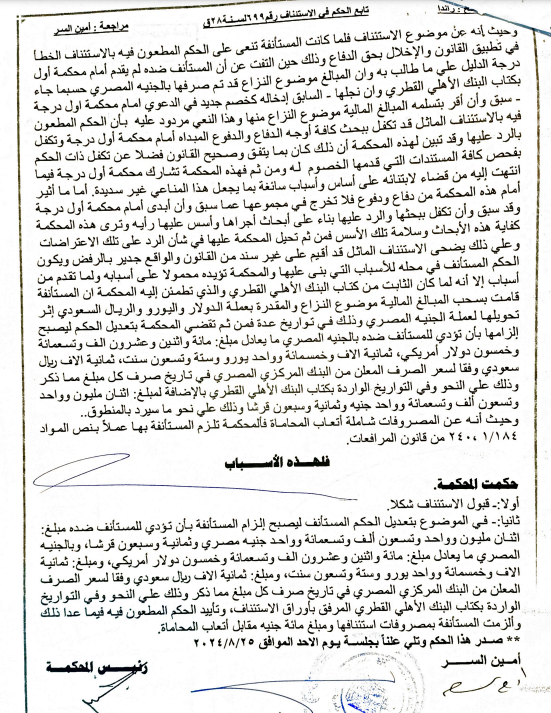 تابع الحكم في الاستئناف رقم ٦٩٩ لسنة ٢٨ق
راندا
مراجعة : أمين السر
وحيث إنه عن موضوع الاستئناف فلما كانت المستأنفة تنعى على الحكم المطعون فيه بالاستئناف الخطأ
في تطبيق القانون والإخلال بحق الدفاع وذلك حين التفت عن أن المستأنف ضده لم يقدم أمام محكمة أول
درجة الدليل علي ما طالب به وان المبالغ موضوع النزاع قد تم صرفها بالجنيه المصري حسبما جاء
بكتاب البنك الأهلي القطري وان نجلها - السابق إدخاله كخصم جديد في الدعوي امام محكمة اول درجة
- سبق وأن أقر بتسلمه المبالغ المالية موضوع النزاع منها وهذا النعي مردود عليه بأن الحكم المطعون
فيه بالاستئناف الماثل قد تكفل ببحث كافة أوجه الدفاع والدفوع المبداه أمام محكمة أول درجة وتكفل
بالرد عليها وقد تبين لهذه المحكمة أن ذلك كان بما يتفق وصحيح القانون فضلا عن تكفل ذات الحكم
بفحص كافة المستندات التي قدمها الخصوم له ومن ثم فهذه المحكمة تشارك محكمة أول درجة فيما
انتهت إليه من قضاء لابتنائه على أساس وأسباب سائغة بما يجعل هذا المناعي غير سديدة. أما ما أثير
أمام هذه المحكمة من دفاع ودفوع فلا تخرج في مجموعها عما سبق وأن أبدى أمام محكمة أول درجة
وقد سبق وأن تكفل ببحثها والرد عليها بناء على أبحاث أجراها وأسس عليها رأيه وترى هذه المحكمة
كفاية هذه الأبحاث وسلامة تلك الأسس فمن ثم تحيل المحكمة عليها في شأن الرد على تلك الاعتراضات
وعلي ذلك يضحى الاستئناف الماثل قد أقيم على غير سند من القانون والواقع جدير بالرفض ويكون
الحكم المستأنف في محله للأسباب التي بنى عليها والمحكمة تؤيده محمولا على أسبابه ولما تقدم من
أسباب إلا أنه لما كان الثابت من كتاب البنك الأهلي القطري والذي تطمئن إليه المحكمة ان المستأنفة
قامت بسحب المبالغ المالية موضوع النزاع والمقدرة بعملة الدولار واليورو والريال السعودي إثر
تحويلها لعملة الجنيه المصري وذلك في تواريخ عدة فمن ثم تقضي المحكمة بتعديل الحكم ليصبح
إلزامها بأن تؤدي للمستأنف ضده بالجنيه المصري ما يعادل مبلغ: مائة واثنين وعشرون الف وتسعمائة
وخمسون دولار أمريكي، ثمانية الاف وخمسمائة وواحد يورو وستة وتسعون سنت، ثمانية الاف ريال
سعودي وفقا لسعر الصرف المعلن من البنك المركزي المصري في تاريخ صرف كل مبلغ مما ذكر
وذلك علي النحو وفي التواريخ الواردة بكتاب البنك الأهلي القطري بالإضافة لمبلغ: اثنان مليون وواحد
وتسعون ألف وتسعمائة وواحد جنيه وثمانية وسبعون قرشا وذلك علي نحو ما سيرد بالمنطوق..
وحيث أنه عن المصروفات شاملة أتعاب المحاماة فالمحكمة تلزم المستأنفة بها عملاً بنص المواد
١/١٨٤ ، ٢٤٠ من قانون المرافعات.
فلهذه الأسباب
حكمت المحكمة.
أولا:- قبول الاستئناف شكلا.
ثانيا:- في الموضوع بتعديل الحكم المستأنف ليصبح إلزام المستأنفة بأن تؤدي للمستأنف ضده مبلغ:
اثنان مليون وواحد وتسعون ألف وتسعمائة وواحد جنيه مصري وثمانية وسبعون قرشا، وبالجنيه
المصري ما يعادل مبلغ: مائة واثنين وعشرون الف وتسعمائة وخمسون دولار أمريكي، ومبلغ: ثمانية
الاف وخمسمائة وواحد يورو وستة وتسعون سنت، ومبلغ: ثمانية الاف ريال سعودي وفقا لسعر الصرف
المعلن من البنك المركزي المصري في تاريخ صرف كل مبلغ مما ذكر وذلك علي النحو وفي التواريخ
الواردة بكتاب البنك الأهلي القطري المرفق بأوراق الاستئناف، وتأييد الحكم المطعون فيه فيما عدا ذلك
وألزمت المستأنفة بمصروفات استئنافها ومبلغ مائة جنيه مقابل أتعاب المحاماة.
** صدر هذا الحكم وتلي علناً بجلسة يوم الاحد الموافق ٢٠٢٤/٨/٢٥
أمين السر
رئيس المحكمة